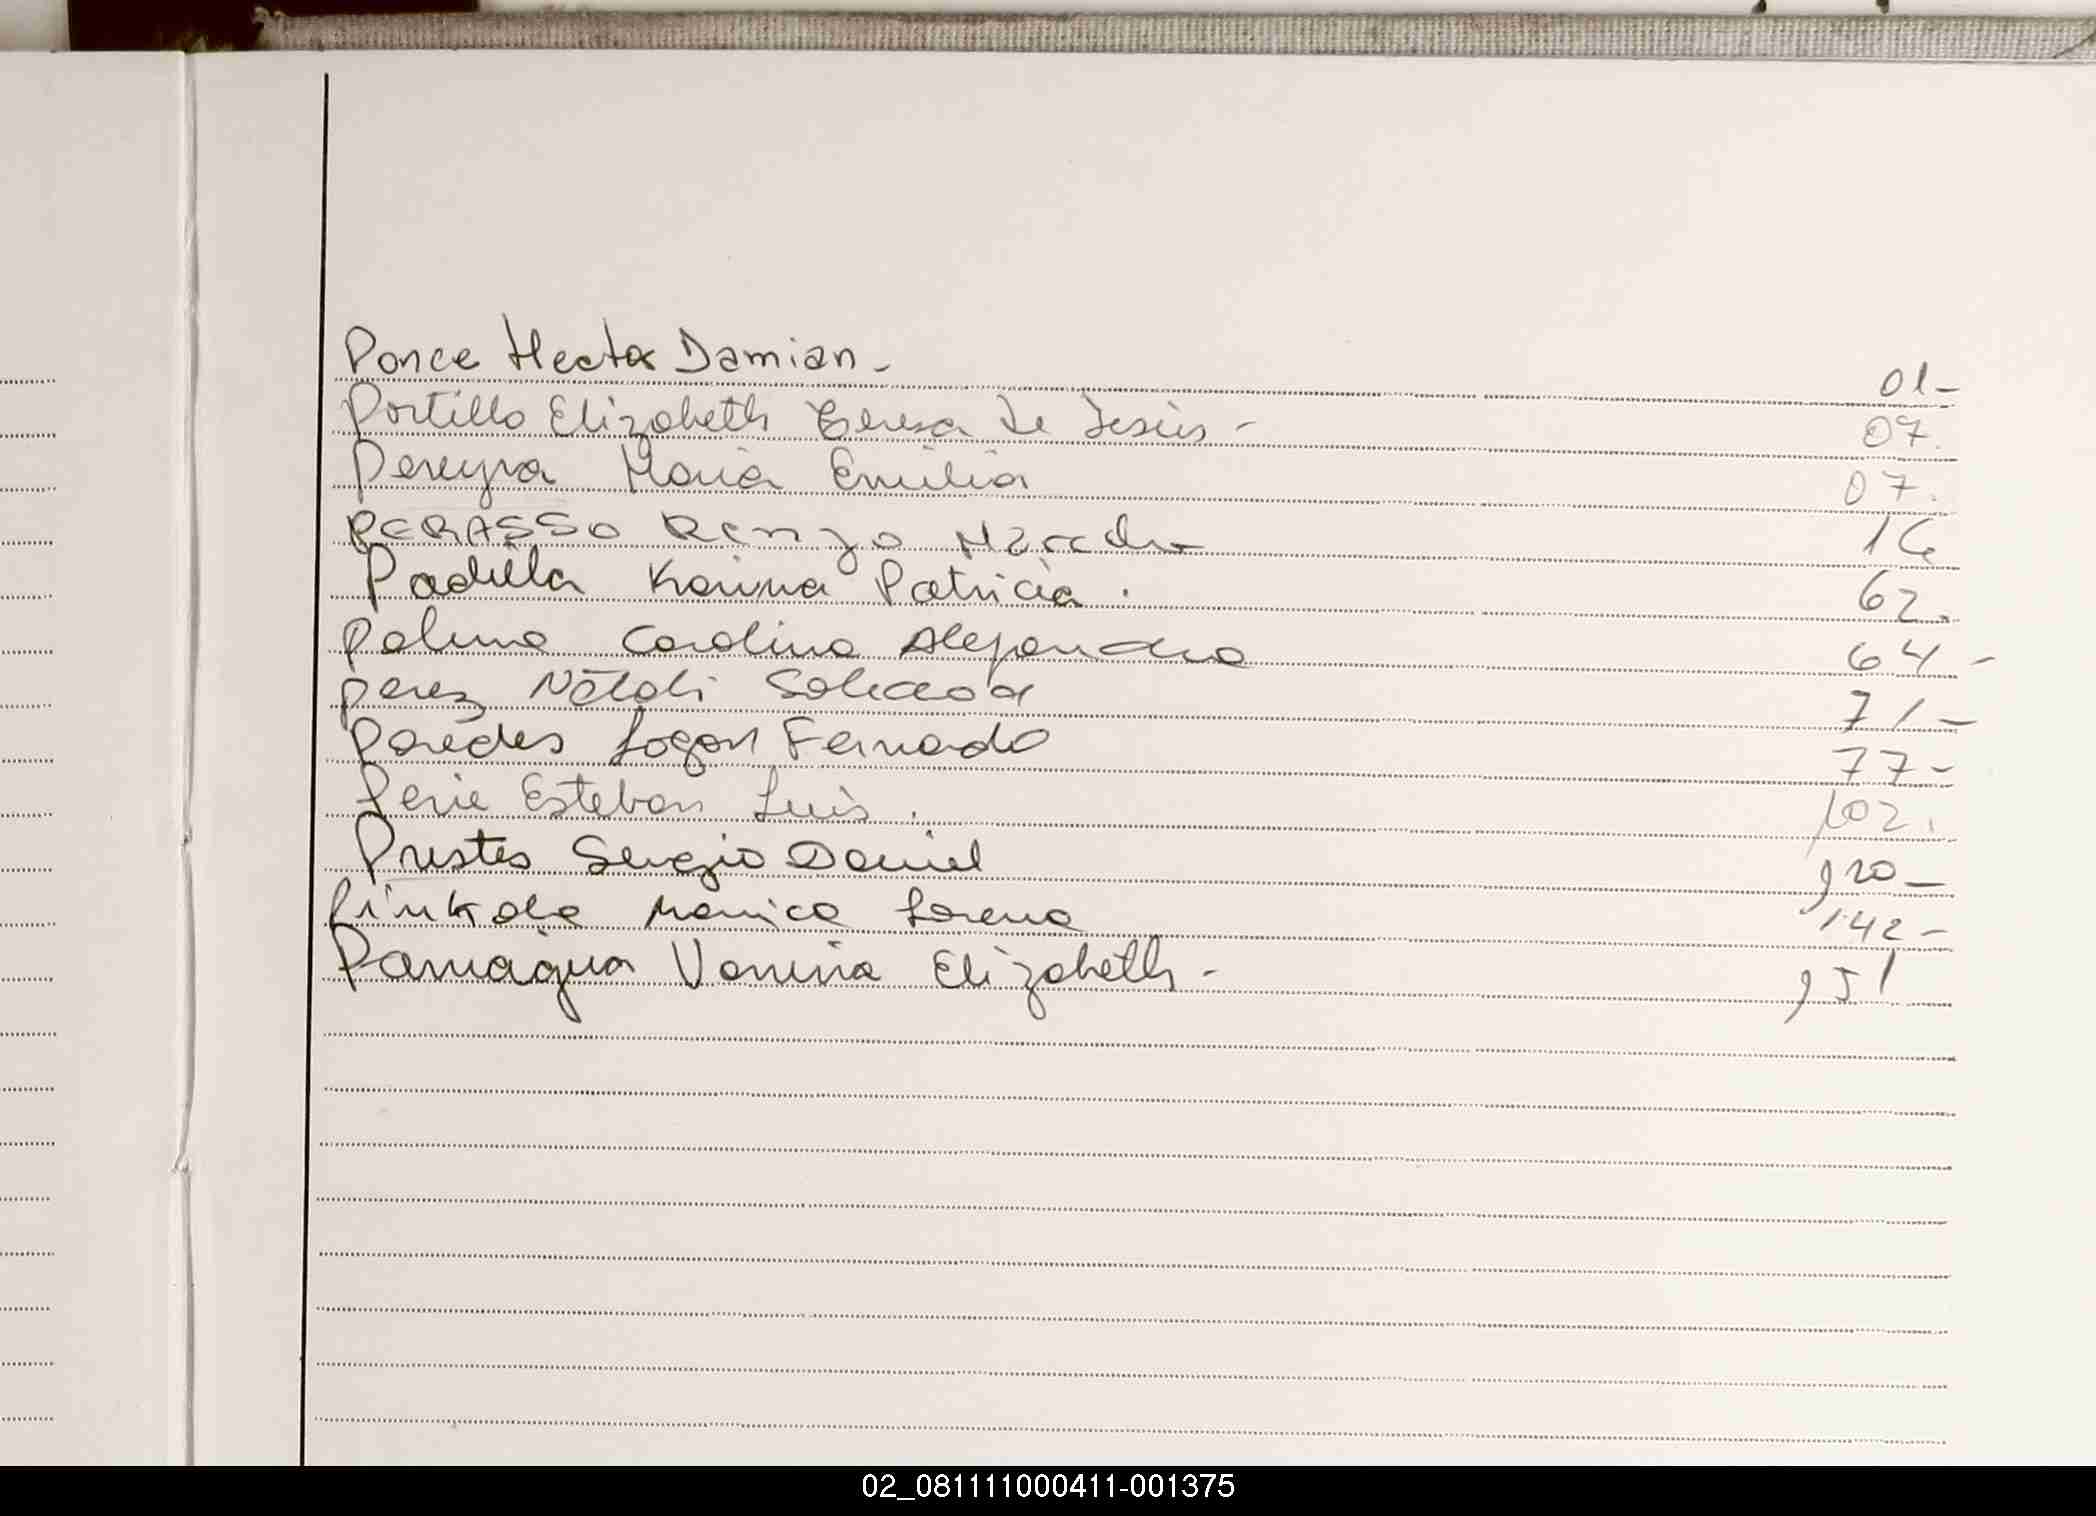 Ponce Hector Damian - 01-
Portillo Elizabeth Teresa de Jesús - 07.
Pereyra Maria Emilia 07.
PERASSO Renzo 16
Padilla Karina Patricia . 62.
Palma Carolina Alejandra 64 -
Perez Soledad 71-
Paredes Fernando 77-
Esteban Luis . 102.
Prestes Sergio Daniel 120-
Monica Lorena 142-
Paniagua Vanina Elizabeth - 151
02_081111000411-001375